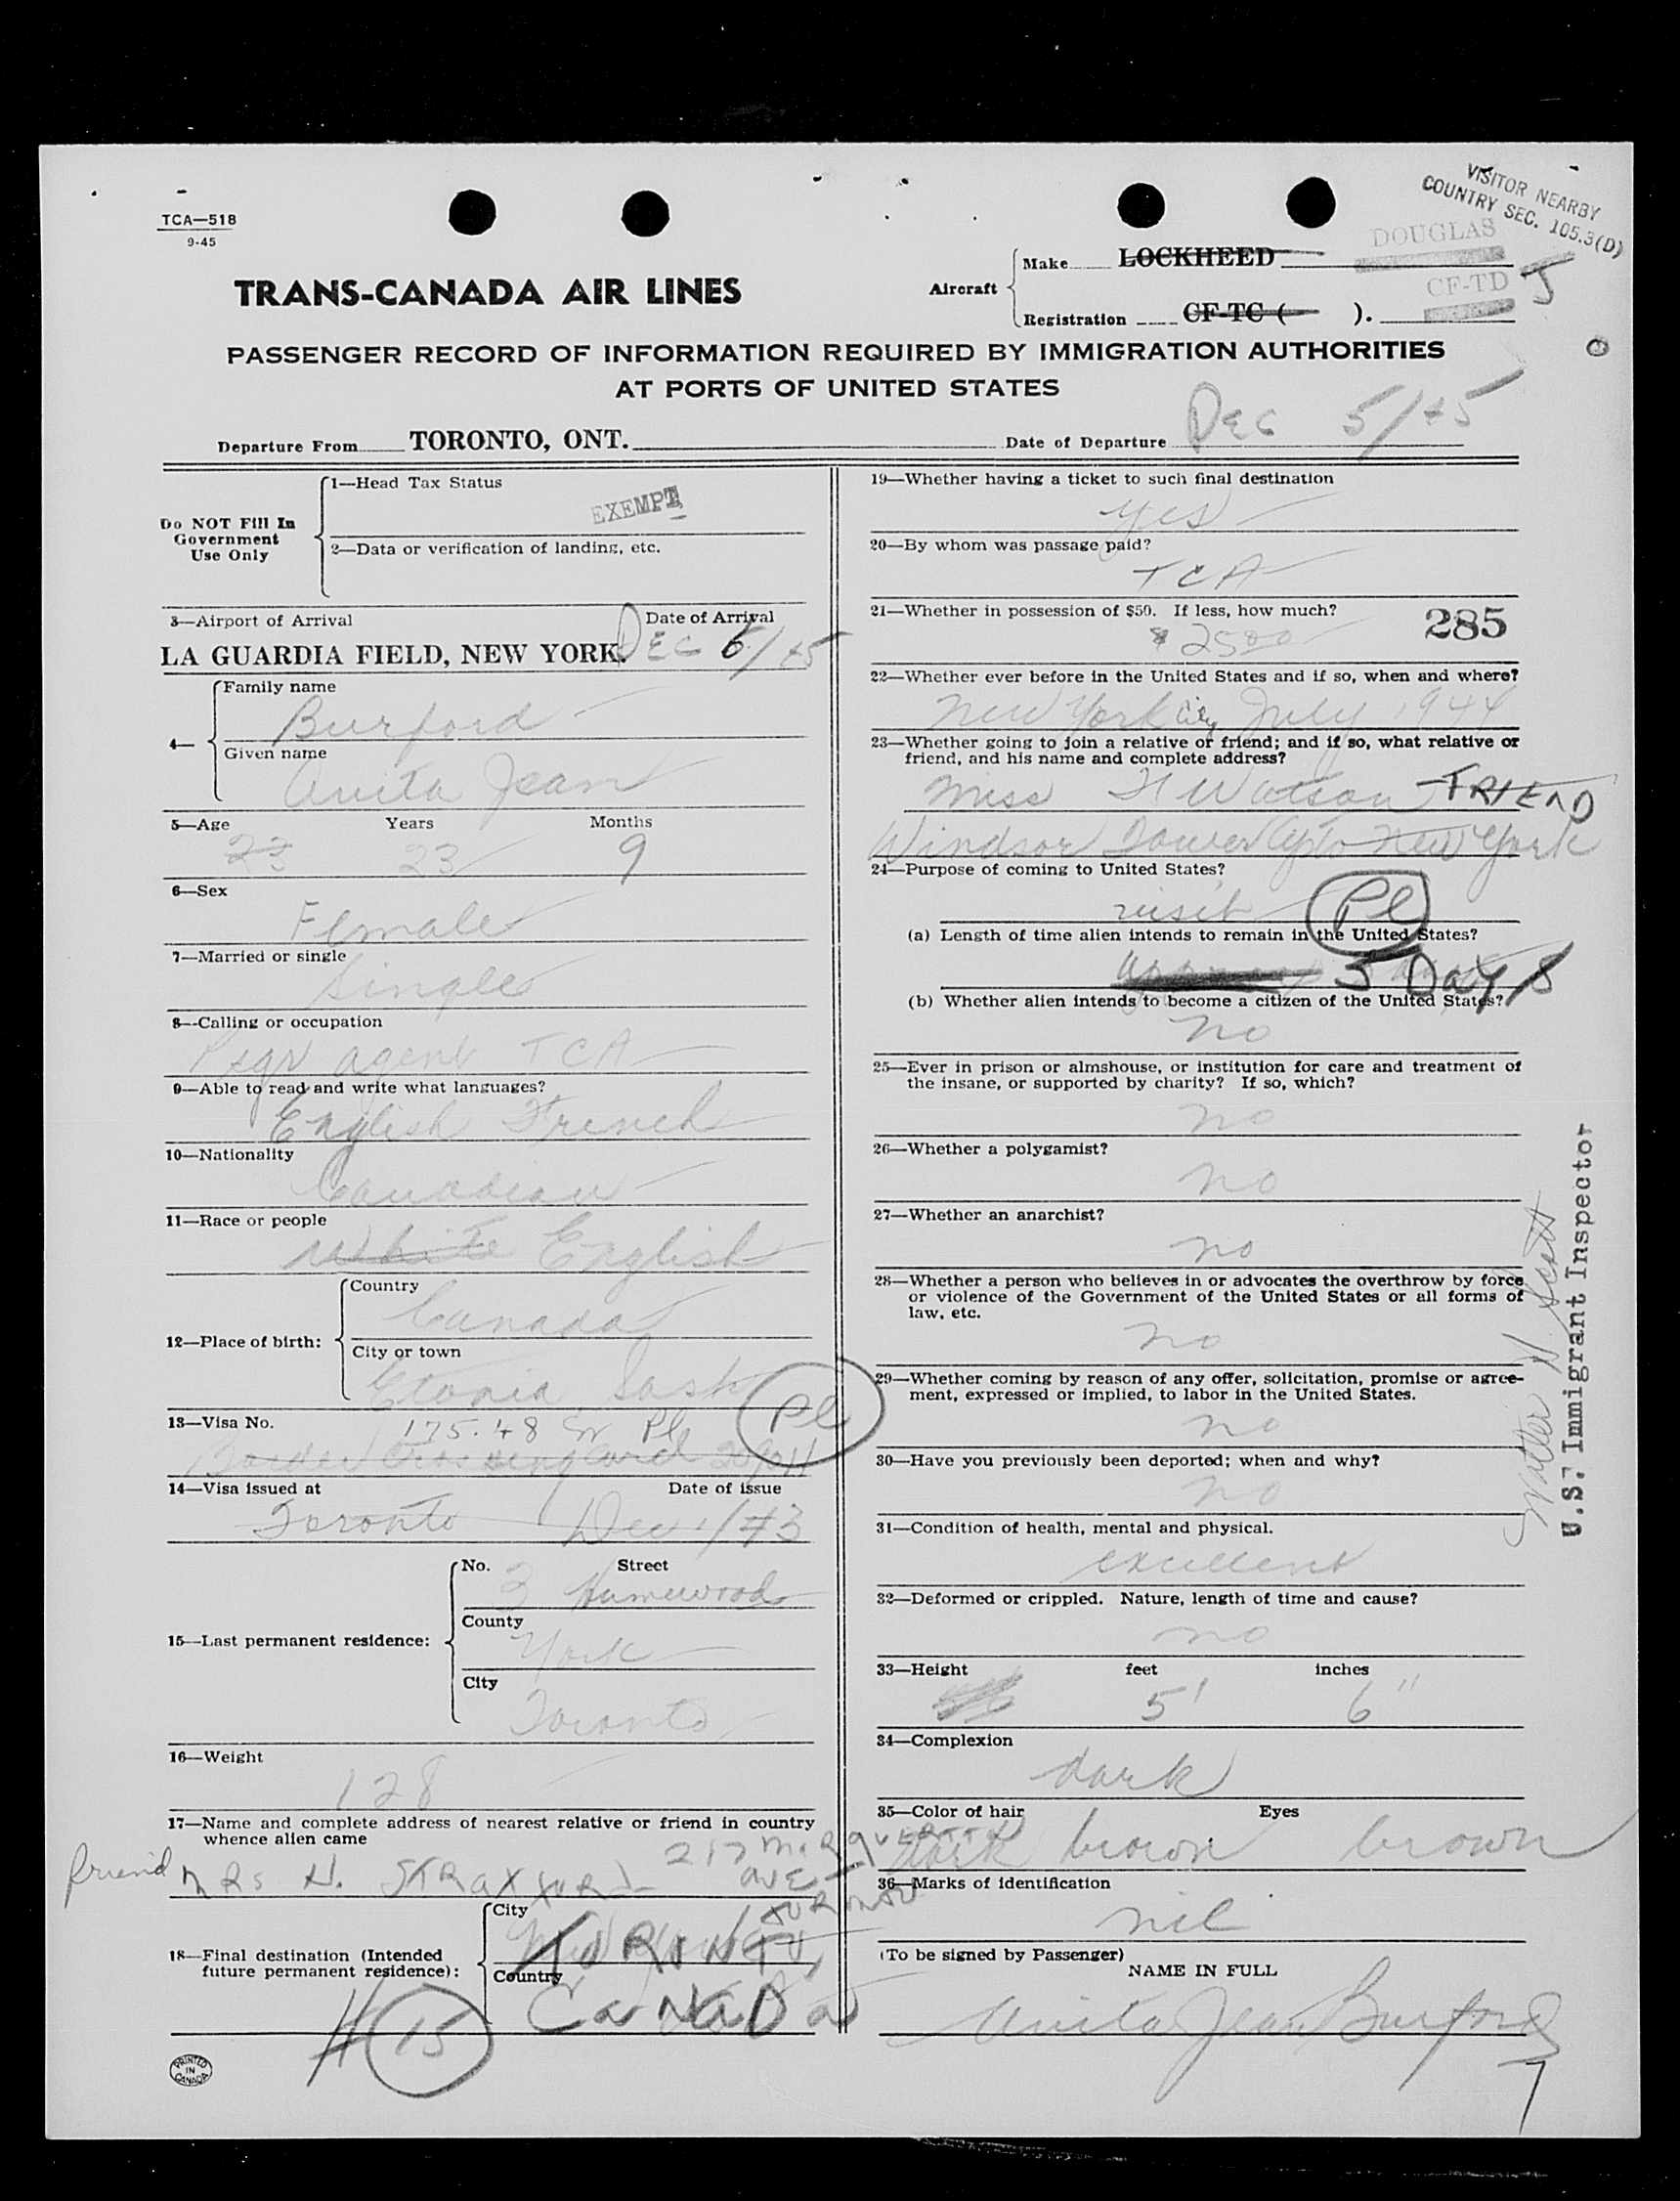 VISITOR NEARBY
COUNTRY SEC. 105.3(D)
TCA—518
9-45
TRANS-CANADA AIR LINES
Aircraft
Make LOCKHEED DOUGLAS
Registration CF-TC ( ). CF-TD J
PASSENGER RECORD OF INFORMATION REQUIRED BY IMMIGRATION AUTHORITIES
AT PORTS OF UNITED STATES
Departure From TORONTO, ONT. Date of Departure Dec 5/45
Do NOT Fill In
Government
Use Only
1—Head Tax Status
EXEMPT
2—Data or verification of landing, etc.
3—Airport of Arrival Date of Arrival
LA GUARDIA FIELD, NEW YORK. DEC 6/45
4—
Family name
Burford
Given name
Anita Jean
5—Age Years Months
23 23 9
6—Sex
Female
7—Married or single
Single
8—Calling or occupation
Psgr agent TCA
9—Able to read and write what languages?
English French
10—Nationality
Canadian
11—Race or people
White English
12—Place of birth:
Country
Canada
City or town
Etonia Sask
13—Visa No. 175.48 Pl Pl
Border Crossing Card
14—Visa issued at Date of issue
Toronto Dec 1/43
15—Last permanent residence:
No. Street
3 Humewood
County
York
City
Toronto
16—Weight
128
17—Name and complete address of nearest relative or friend in country
whence alien came
friend MRS N. 217
AVE
TORONTO
18—Final destination (Intended
future permanent residence):
City
TORONTO,
Country
CANADA
# 15
PRINTED
IN
CANADA
19—Whether having a ticket to such final destination
yes
20—By whom was passage paid?
TCA
21—Whether in possession of $50. If less, how much?
$ 2500 285
22—Whether ever before in the United States and if so, when and where?
New York City July 1944
23—Whether going to join a relative or friend; and if so, what relative or
friend, and his name and complete address?
Miss H Watson FRIEND
Windsor Tower Apts New York
24—Purpose of coming to United States?
visit Pl
(a) Length of time alien intends to remain in the United States?
5 DAYS
(b) Whether alien intends to become a citizen of the United States?
no
25—Ever in prison or almshouse, or institution for care and treatment of
the insane, or supported by charity? If so, which?
no
26—Whether a polygamist?
no
27—Whether an anarchist?
no
28—Whether a person who believes in or advocates the overthrow by force
or violence of the Government of the United States or all forms of
law, etc.
no
29—Whether coming by reason of any offer, solicitation, promise or agree-
ment, expressed or implied, to labor in the United States.
no
30—Have you previously been deported; when and why?
no
31—Condition of health, mental and physical.
excellent
32—Deformed or crippled. Nature, length of time and cause?
no
33—Height feet inches
5' 6"
34—Complexion
dark
35—Color of hair Eyes
dark brown brown
36—Marks of identification
nil
(To be signed by Passenger)
NAME IN FULL
Anita Jean Burford
7
Walter N. Scott
U.S. Immigrant Inspector